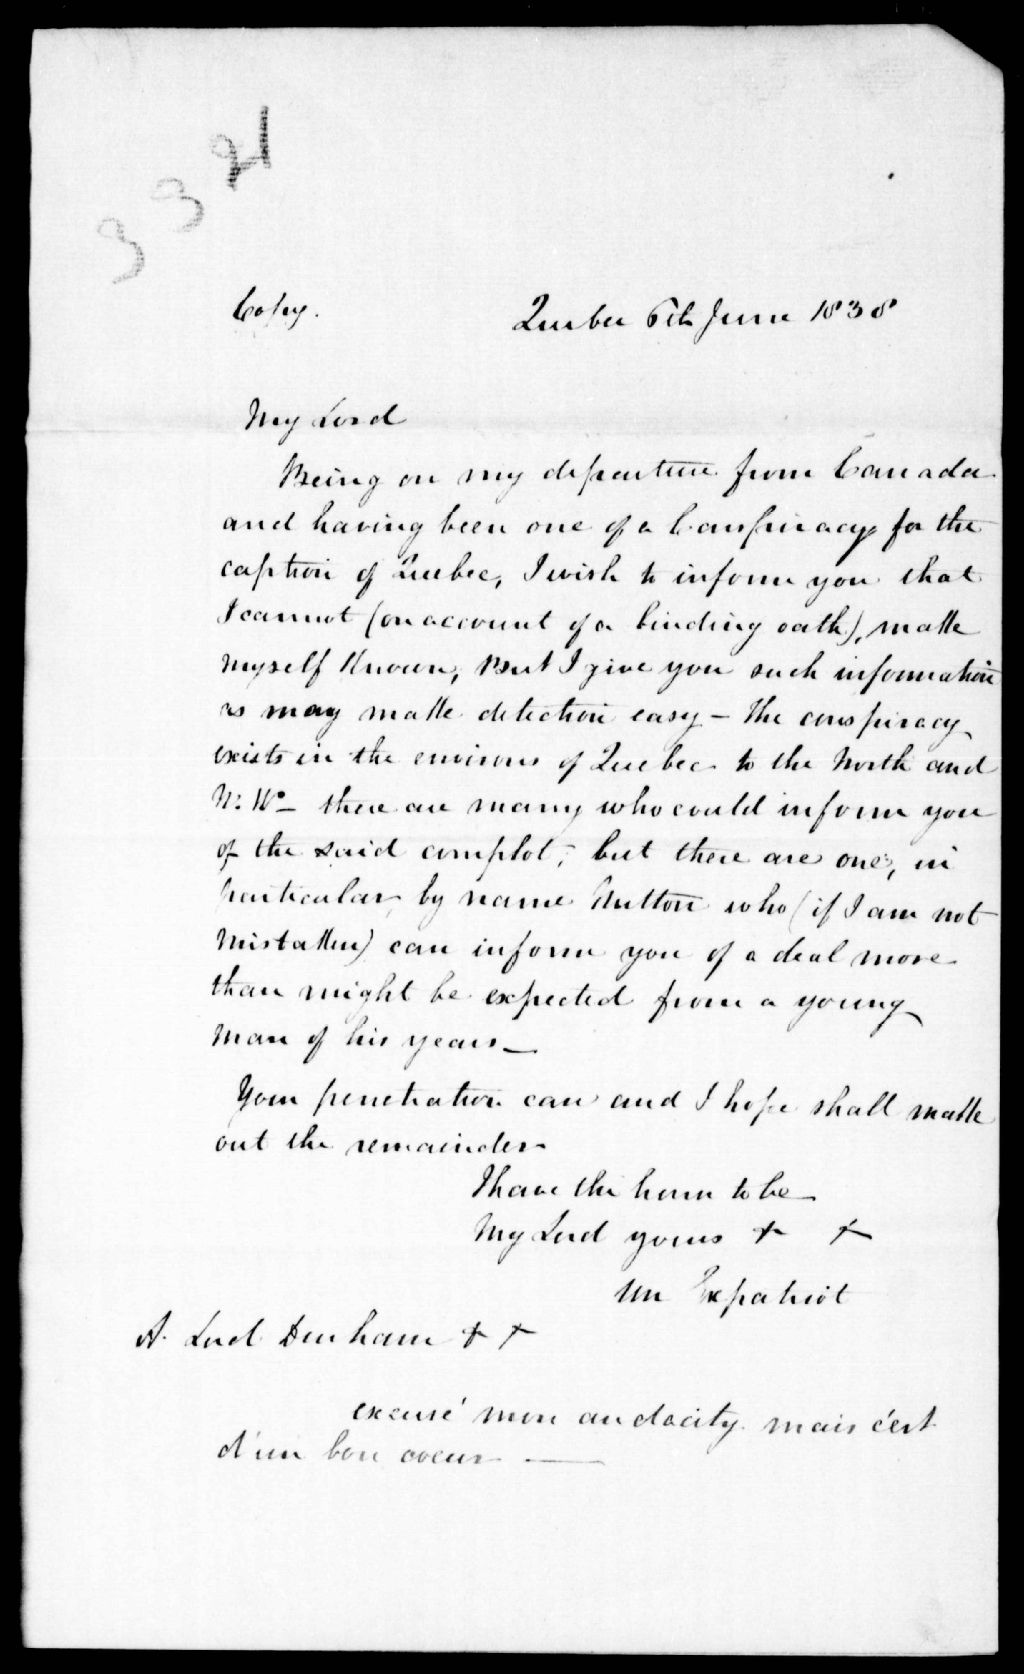 3 3 21
Copy.
Quebec 6th June 1838
My Lord
Being on my departure from Canada
and having been one of a Conspiracy for the
caption of Quebec, I wish to inform you that
I cannot (on account of a binding oath), make
myself known, But I give you such information
as may make detection easy – The conspiracy
exists in the environs of Quebec to the North and
N: W– there are many who could inform you
of the said complot, but there are one, in
particular, by name Hutton who (if I am not
mistaken) can inform you of a deal more
than might be expected from a young
man of his years –
Your penetration can and I hope shall make
out the remainder
I have the honor to be
My Lord yours + +
Un Expatriot
A. Lord Durham + +
excusé mon audacity mais c'est
d'un bon coeur —